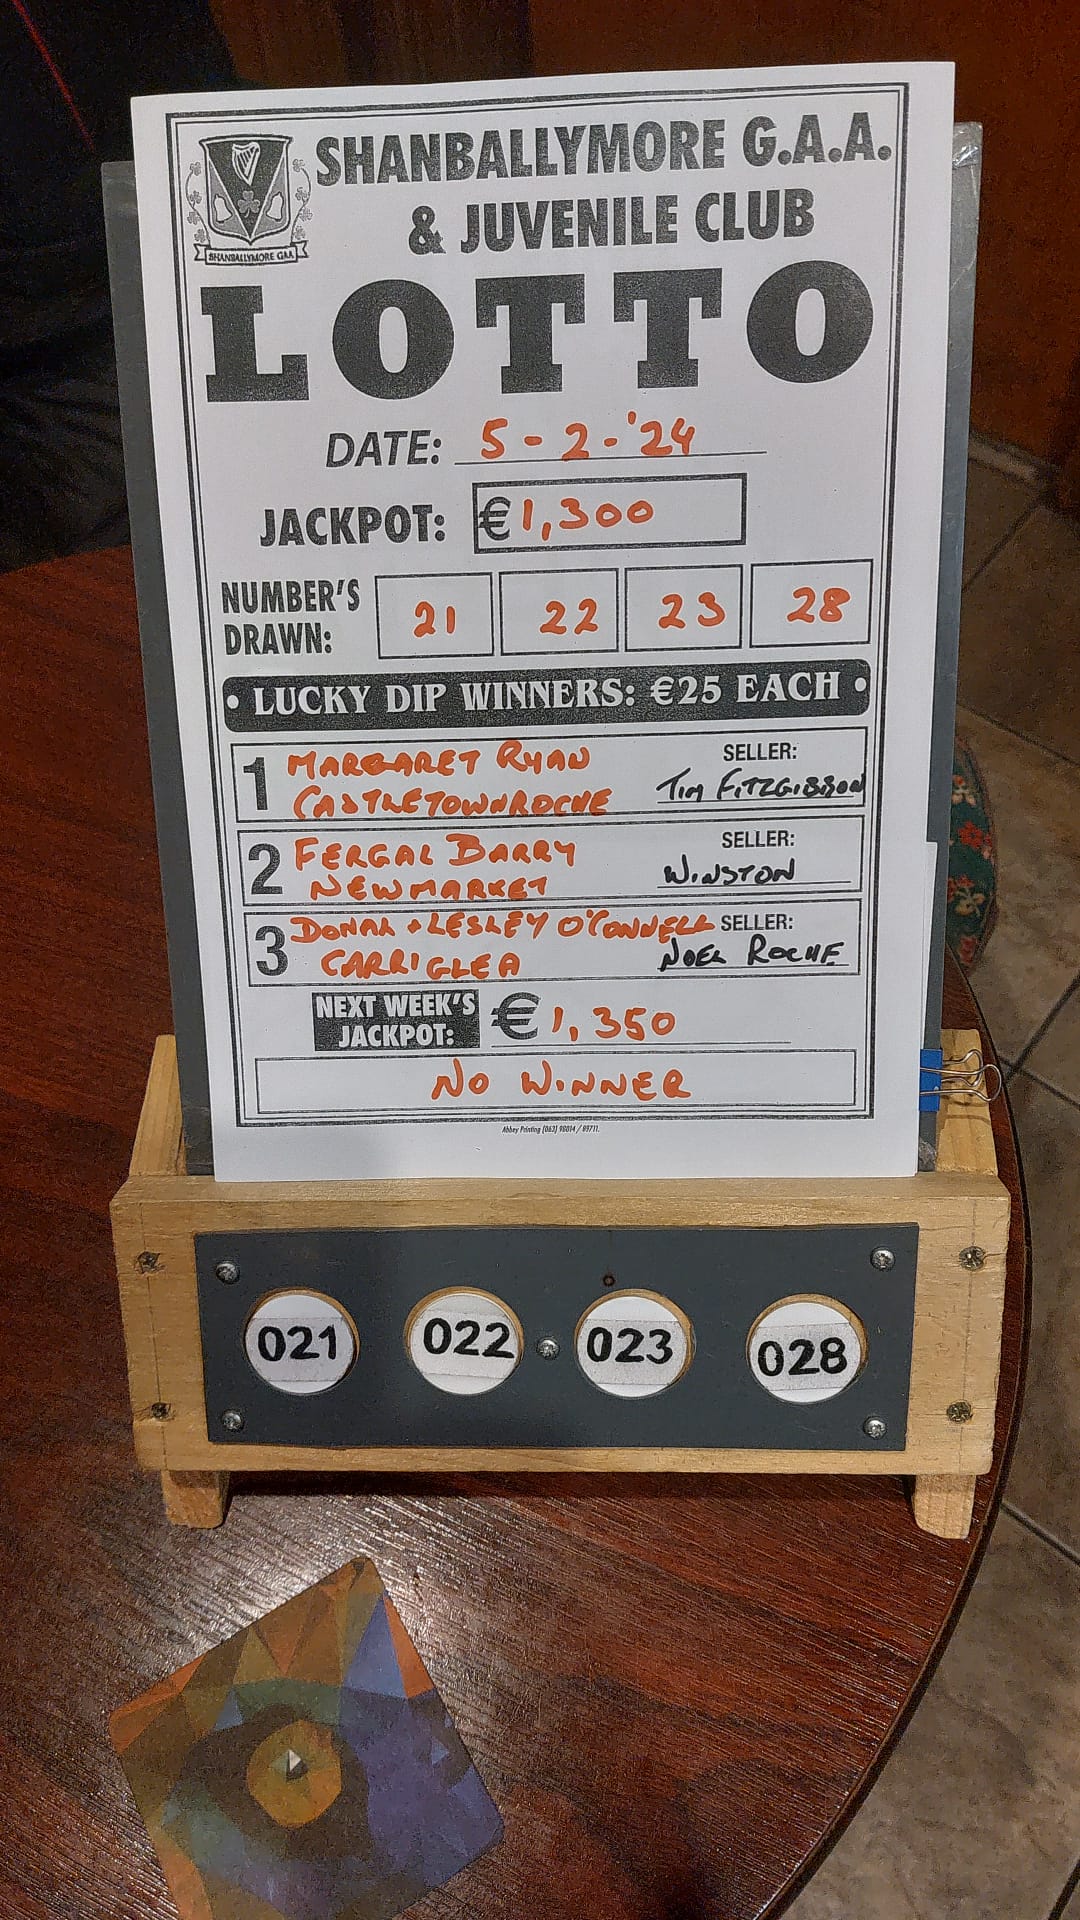 SHANBALLYMORE G.A.A.
& JUVENILE CLUB
SHANBALLYMORE GAA
LOTTO
DATE: 5-2-'24
JACKPOT: €1,300
NUMBER'S
DRAWN: 21 22 23 28
• LUCKY DIP WINNERS: €25 EACH •
1 MARGARET RYAN SELLER:
CASTLETOWNROCHE TIM FITZGIBBON
2 FERGAL BARRY SELLER:
NEWMARKET WINSTON
3 DONAL + LESLEY O'CONNELL SELLER:
CARRIGLEA NOEL ROCHE
NEXT WEEK'S
JACKPOT: €1,350
NO WINNER
Abbey Printing (063) 98014 / 89711.
021 022 023 028